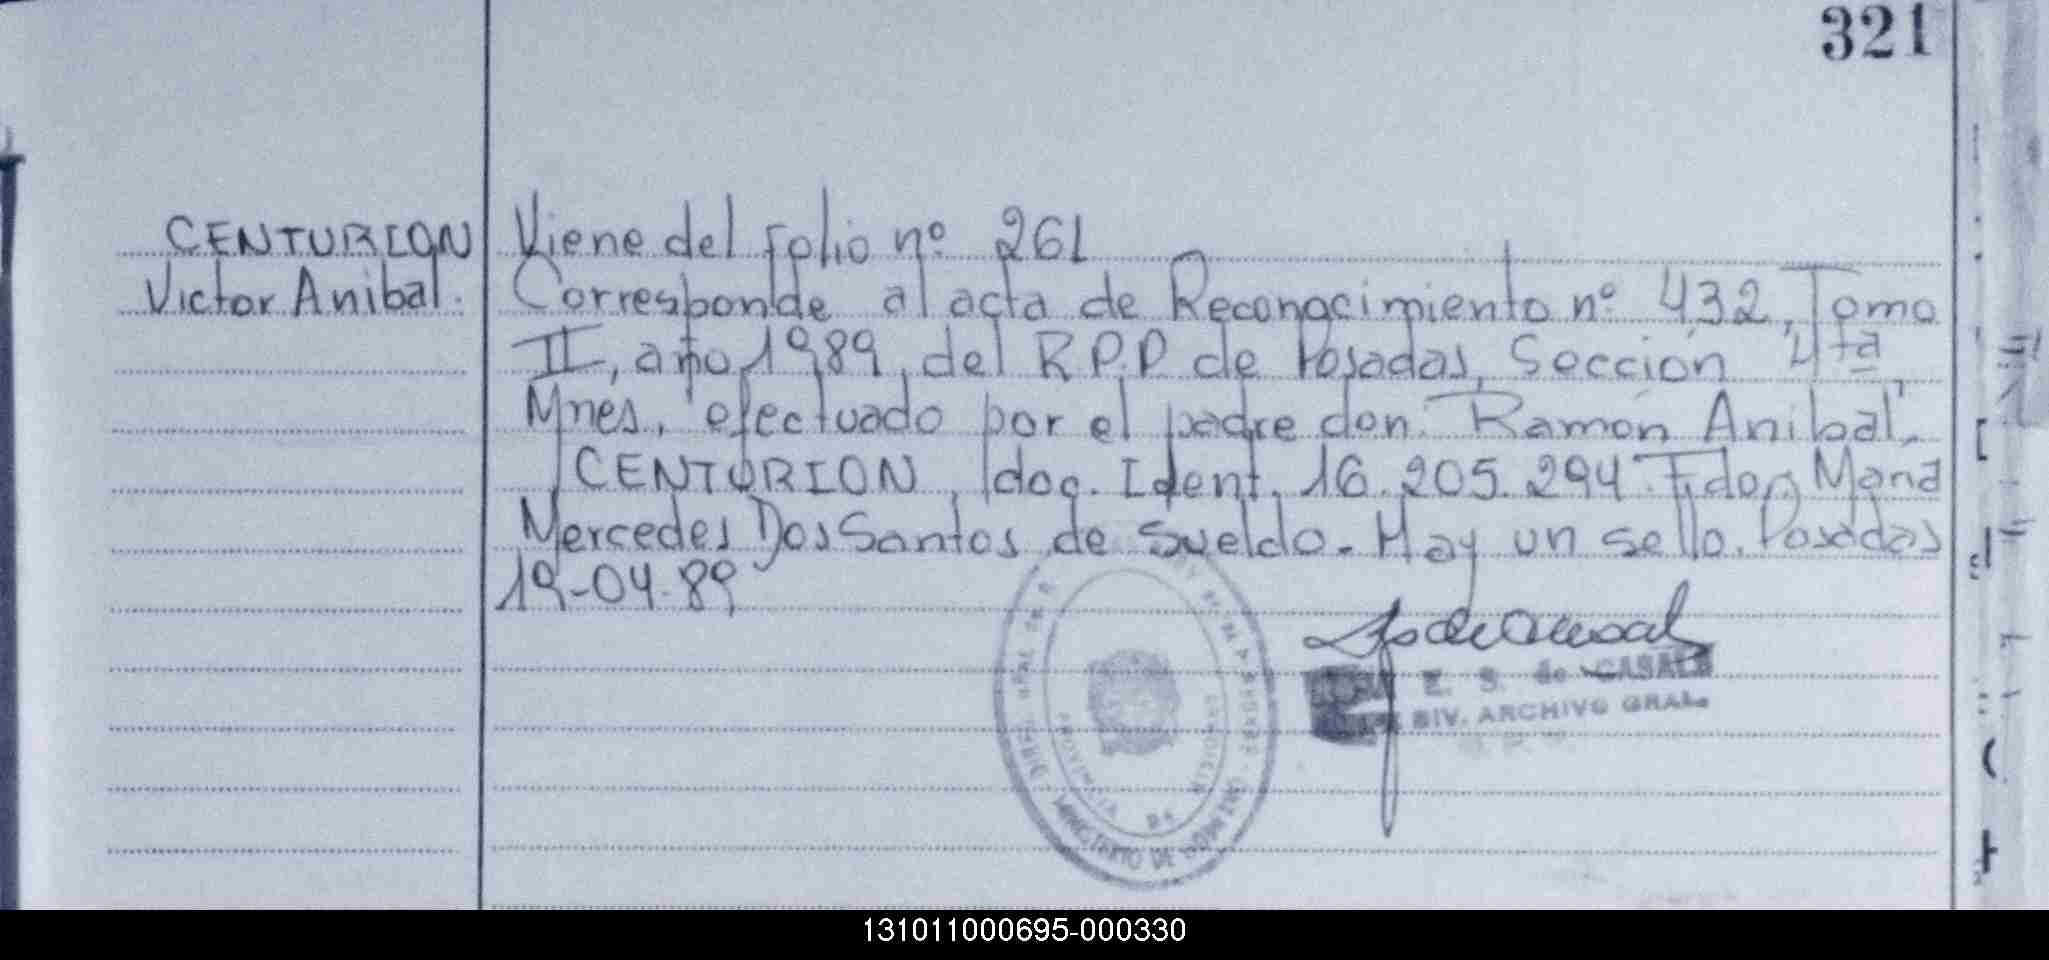 321
CENTURION Viene del folio nº 261
Victor Anibal. Corresponde al acta de Reconocimiento nº 432, Tomo
II, año 1989, del R.P.P. de Posadas, Sección 4ta
Mnes., efectuado por el padre don: Ramón Anibal
CENTURION, doc. Ident. 16.205.294. Fdo,
Mercedes Dos Santos de Sueldo. Hay un sello. Posadas
19-04-89
E. S. de CASALS
DIV. ARCHIVO GRAL.
PROVINCIA DE MISIONES
MINISTERIO DE GOBIERNO
131011000695-000330